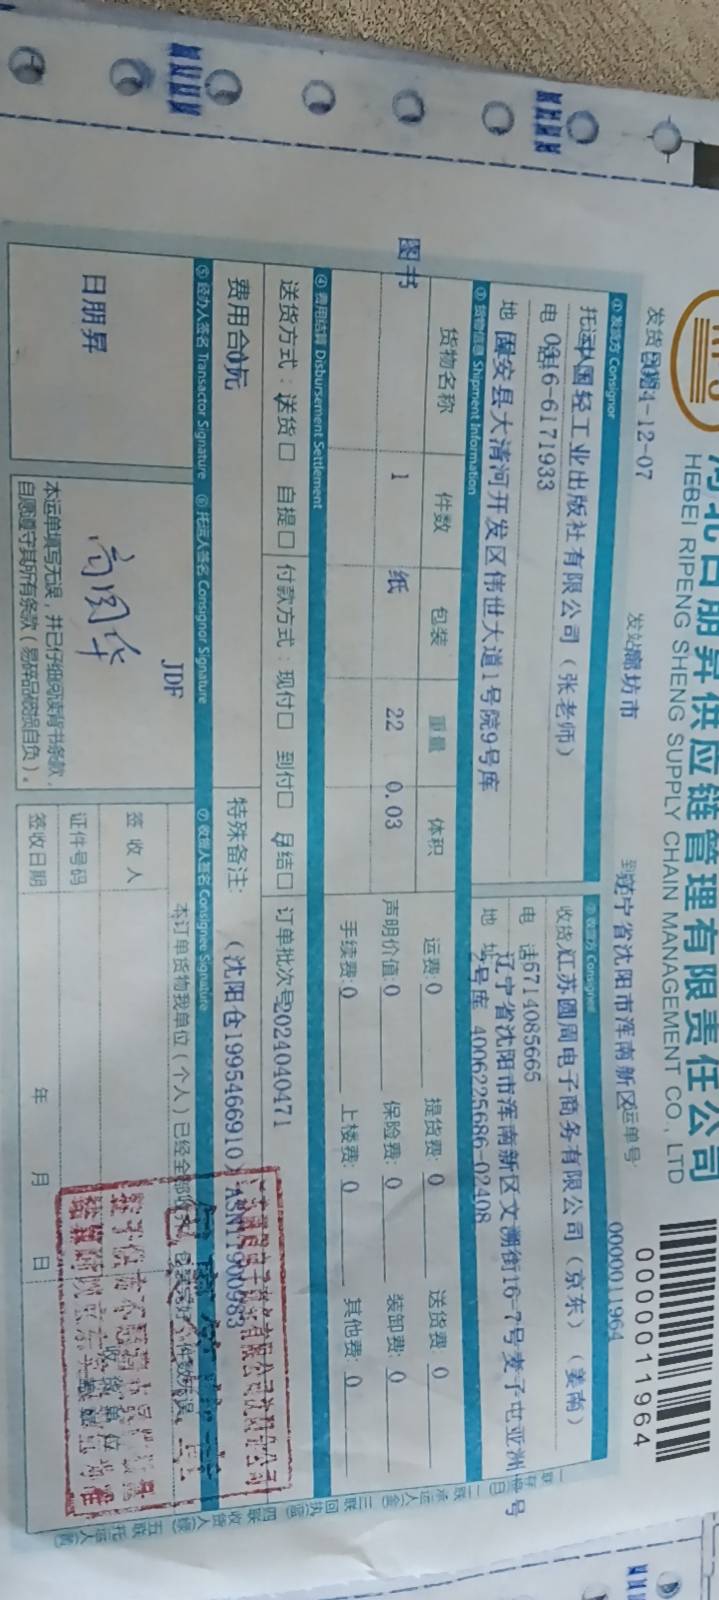 河北日朋昇供应链管理有限责任公司
HEBEI RIPENG SHENG SUPPLY CHAIN MANAGEMENT CO., LTD
0000011964
发货日期 4-12-07
发站 廊坊市
到站 辽宁省沈阳市浑南新区
运单号
0000011964
① 发货方 Consignor
② 收货方 Consignee
托运人 中国轻工业出版社有限公司（张老师）
收货人 江苏圆周电子商务有限公司（京东）（姜南）
电话 0316-6171933
电话 671 4085665
地 固安县大清河开发区伟世大道1号院9号库
地址 辽宁省沈阳市浑南新区文溯街16-7号麦子屯亚洲一号
2号库 4006225686-02408
③ 货物信息 Shipment Information
货物名称 件数 包装 重量 体积
图书 1 纸 22 0.03
运费:0 提货费: 0 送货费: 0
声明价值:0 保险费: 0 装卸费: 0
手续费:0 上楼费: 0 其他费: 0
④ 费用结算 Disbursement Settlement
送货方式：送货□ 自提□ 付款方式：现付□ 到付□ 月结□ 订单批次号2024040471
费用合 0元
特殊备注: （沈阳仓1995466910）ASN11900983
⑤ 经办人签名 Transactor Signature
⑥ 托运人签名 Consignor Signature
⑦ 收货人签名 Consignee Signature
日朋昇
JDF
本运单填写无误，并已仔细阅读背书条款，
自愿遵守其所有条款（易碎品破损自负）。
本订单货物我单位（个人）已经全部收
签收人
证件号码
收货单位
签收日期 年 月 日